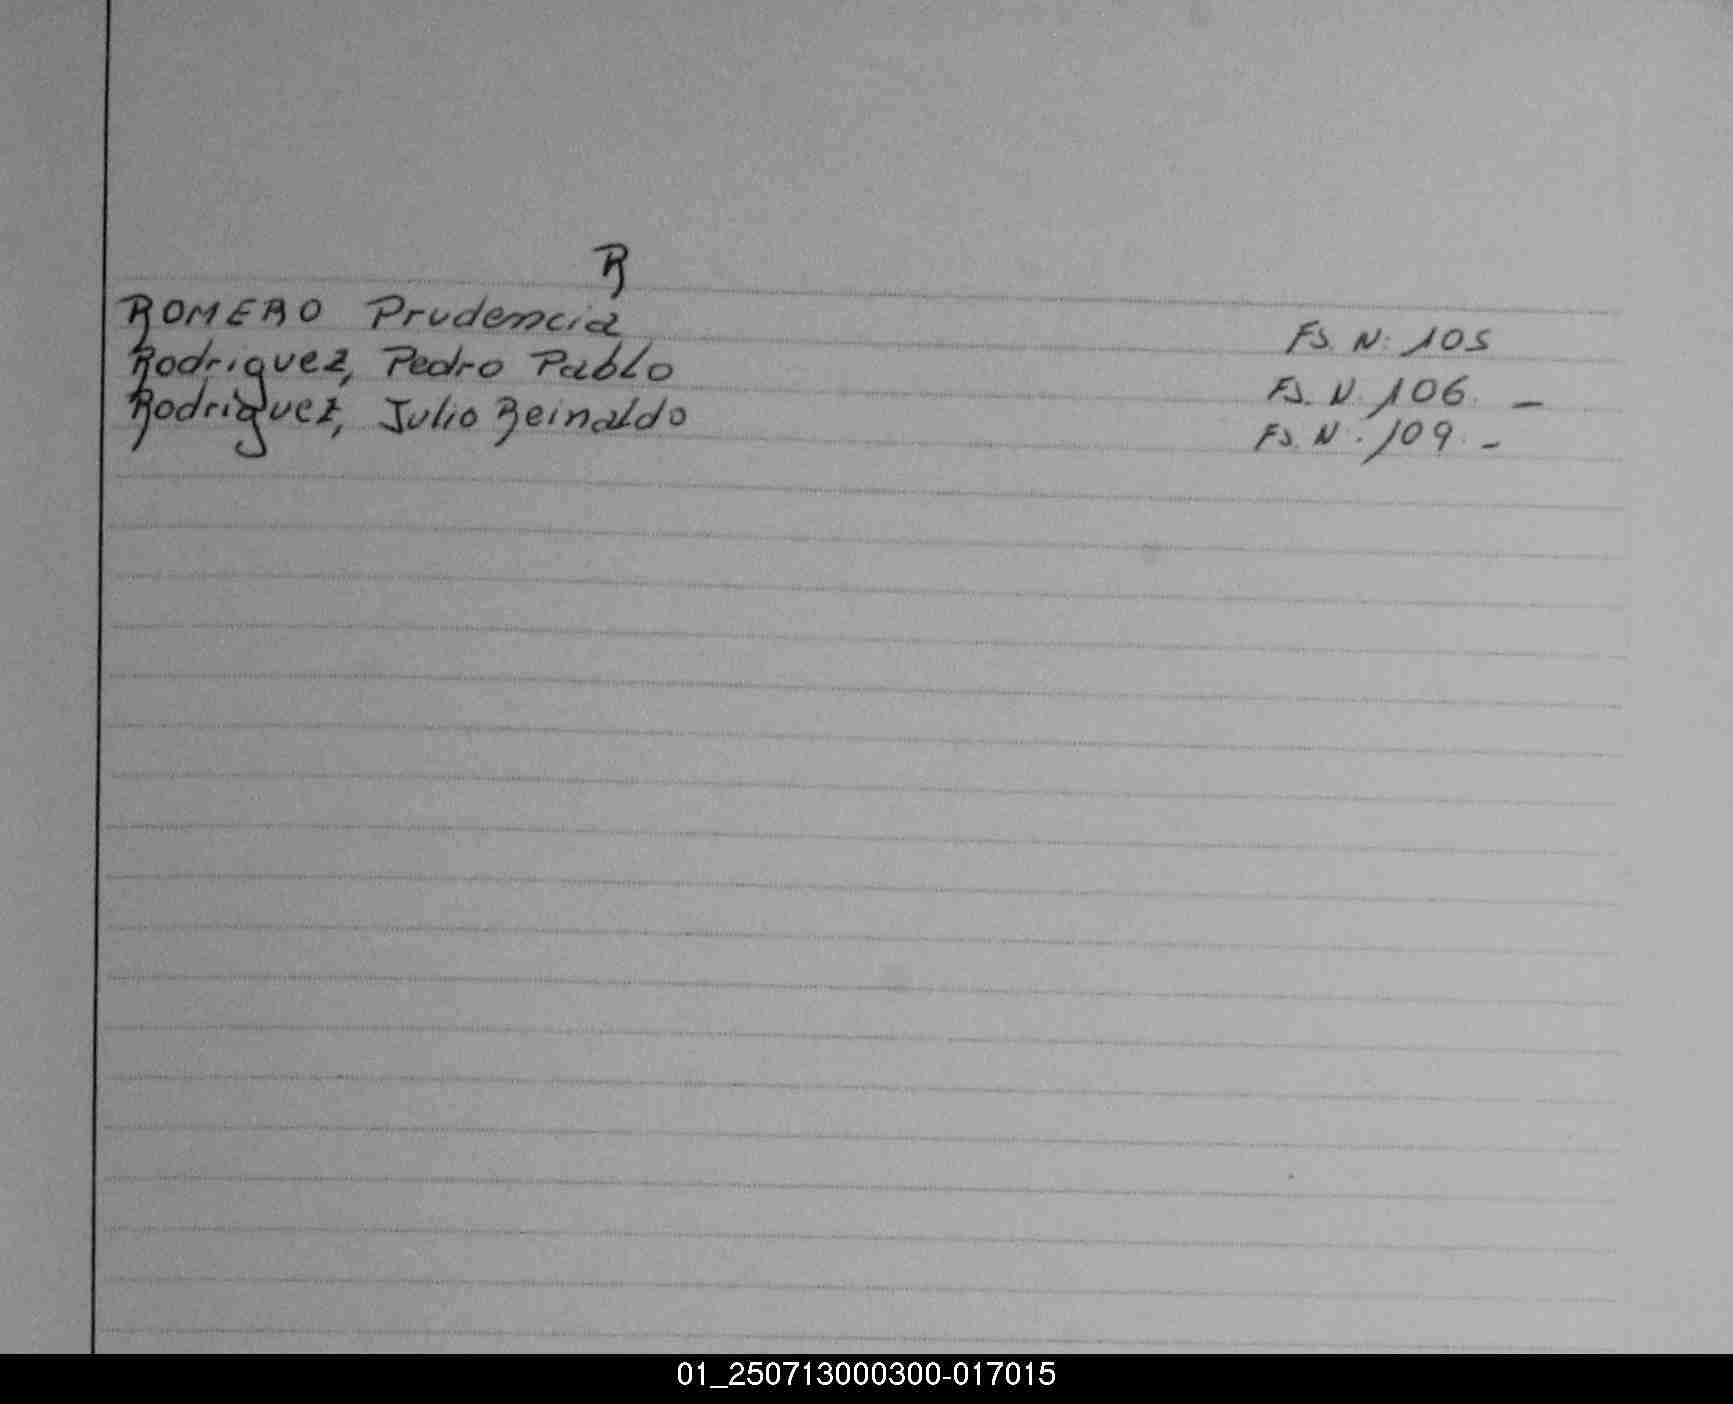 R
ROMERO Prudencia Fs. N: 105
Rodriguez, Pedro Pablo Fs. N. 106. -
Rodriguez, Julio Reinaldo Fs. N. 109. -
01_250713000300-017015